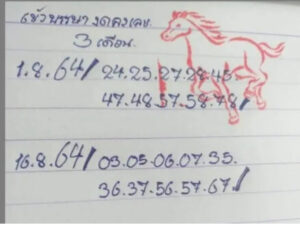 เข้าพรรษา งดคงเลข.
3 เดือน.
1.8.64/ 24.25.27.28.45.
47.48.57.58.78/
16.8.64/ 03.05.06.07.35.
36.37.56.57.67/